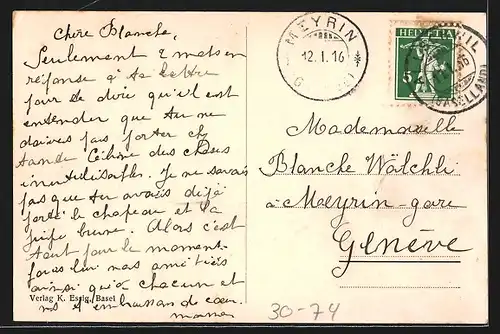 Chère Blanche,
Seulement 2 mots en
réponse à ta lettre
pour te dire qu'il est
entendu que tu ne
doives pas porter ch
tante Céline des choses
inutilisables. Je ne savais
pas que tu avais déjà
porté le chapeau et la
jupe brune. Alors c'est
tout pour le moment.
nos amitiés
ainsi qu'à chacun et
embrassons de cœur.
maman
Verlag K. Essig, Basel
MEYRIN
12.I.16
HELVETIA
5
(BASELLAND)
Mademoiselle
Blanche Wälchli
à Meyrin-gare
Genève
30-74